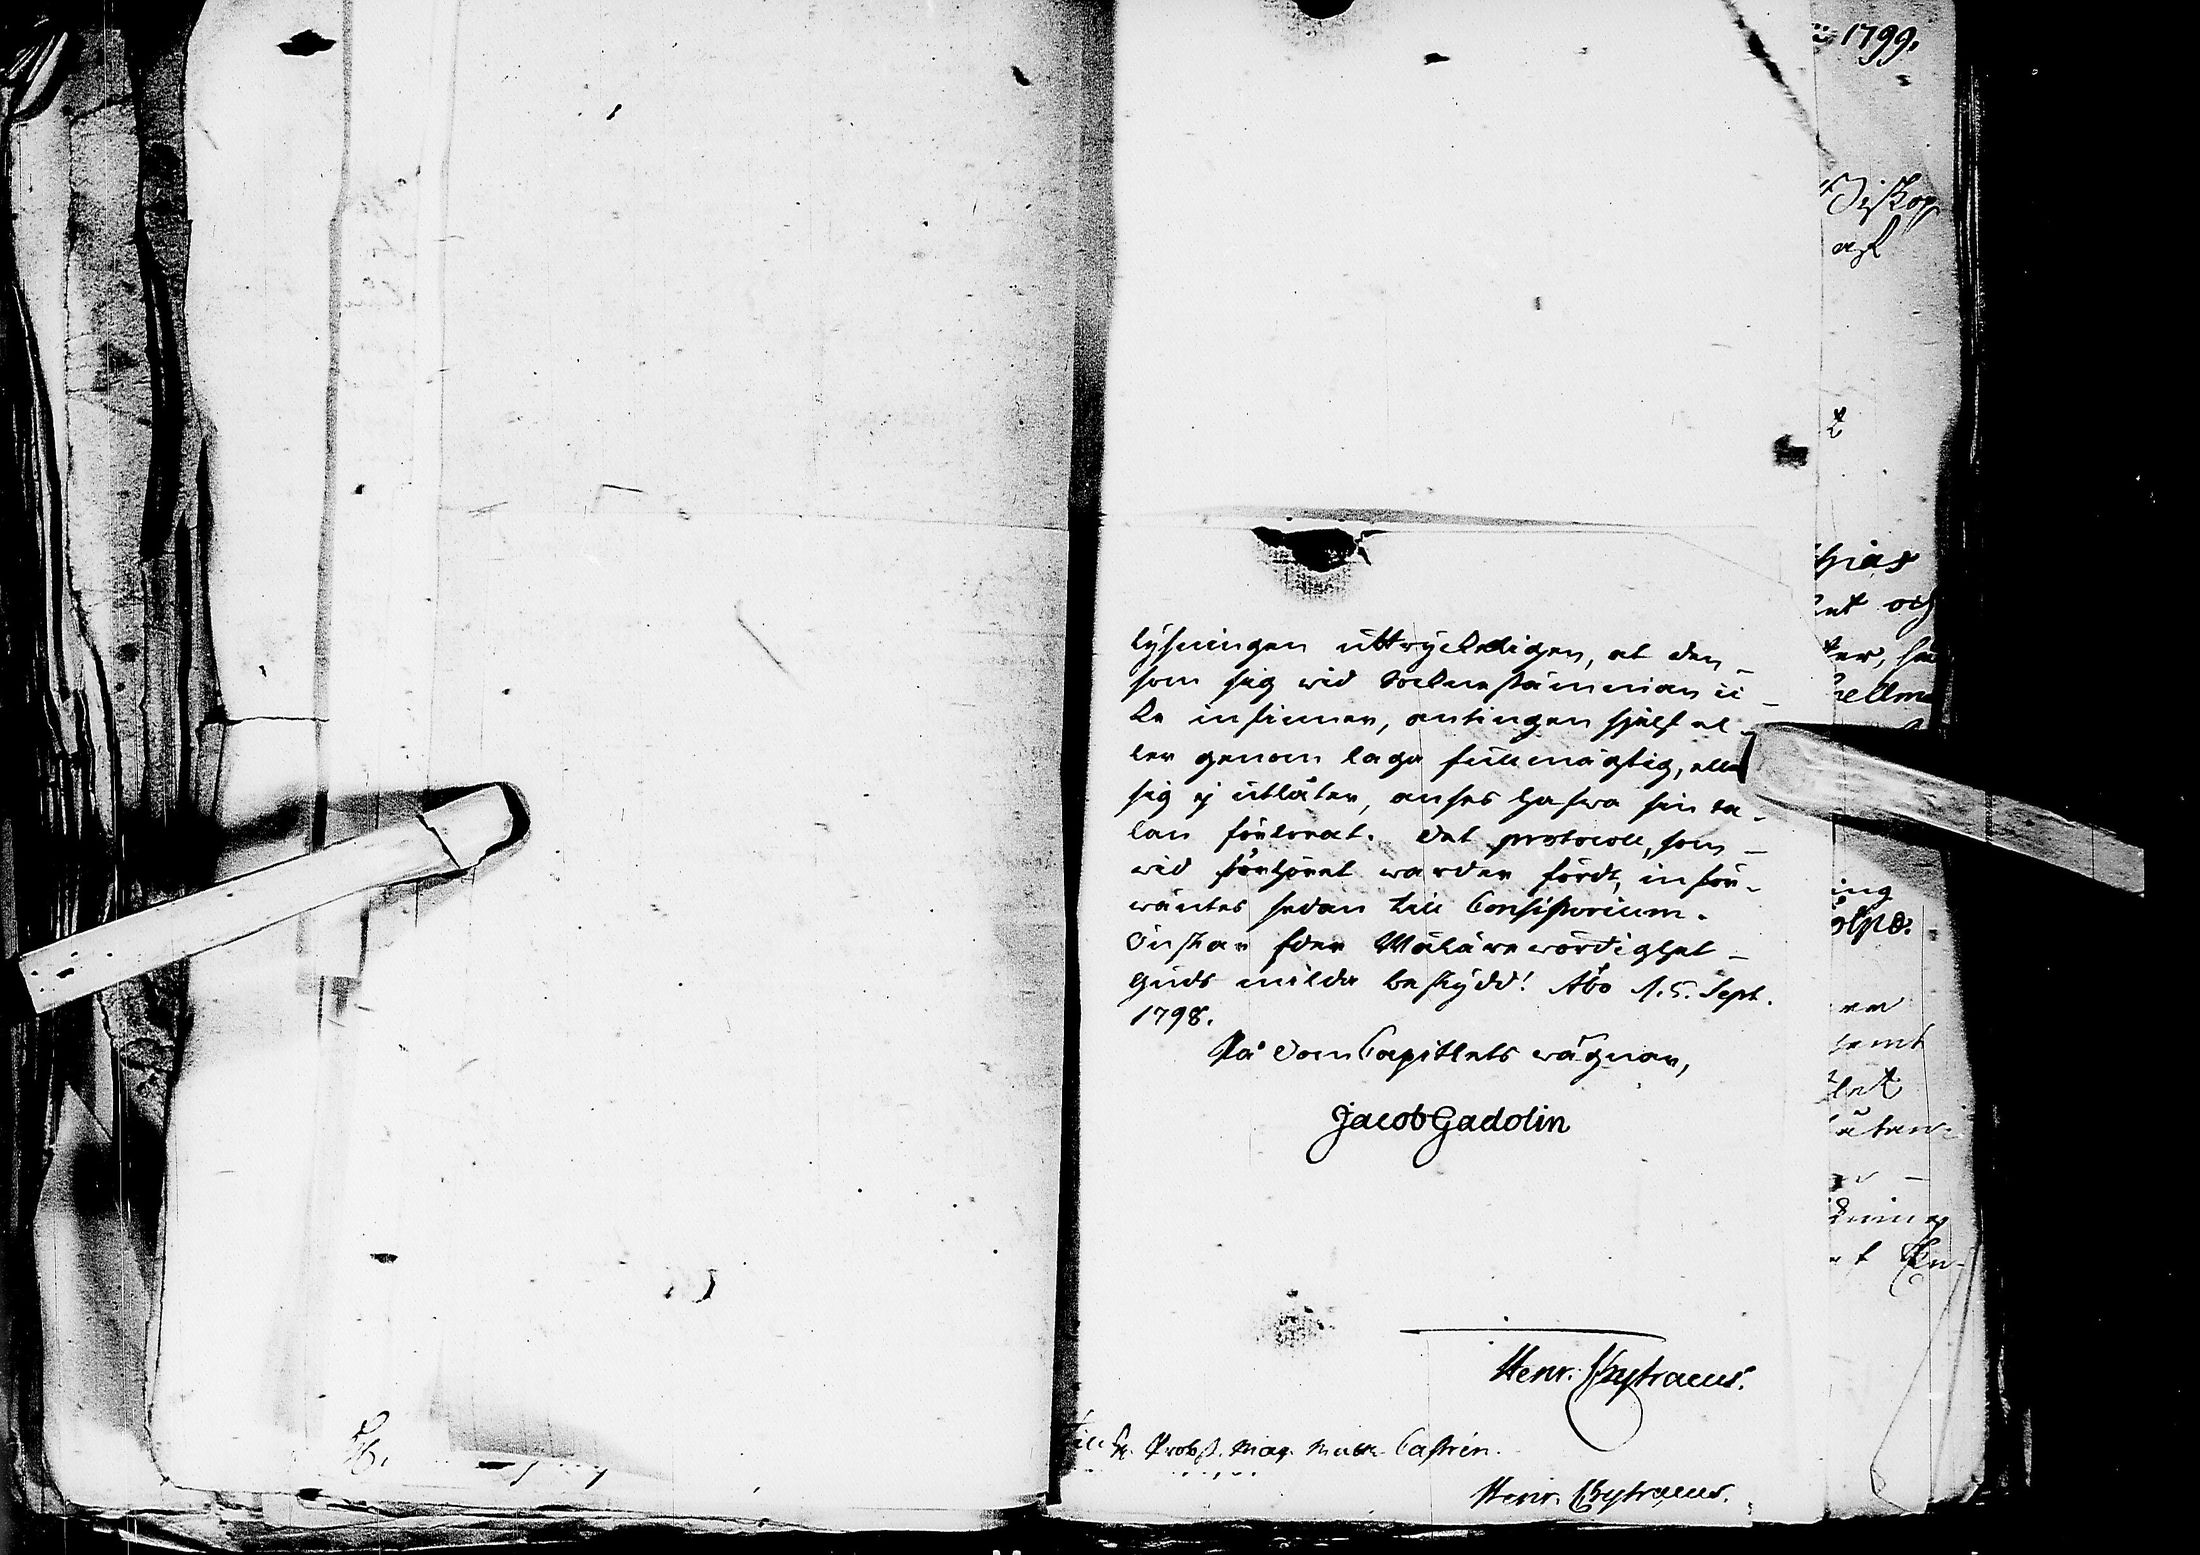 lysningen uttryckeligen, at den
som sig wid Sockne stämman ic
ke infinner, antingen sjelf el-
ler genom laga fullmägtig, eller
sig ej utlåter, anses hafwa sin ta-
lan förlorat. Det protocoll, som
wid förhöret warder fördt, inför-
wäntes sedan till Consistorium.
Önskar eder Wäläre wördighet
Guds milda beskydd! Åbo d. 5. Sept.
1798.
På DomCapitlets wägnar,
Jacob Gadolin
Henr. Chytraeus.
Till Hr. Probst. Mag. Math. Castrén.
Henr. Chytraeus.
1799.
Biskop
hias
et och
ter,
ing
ölpo.